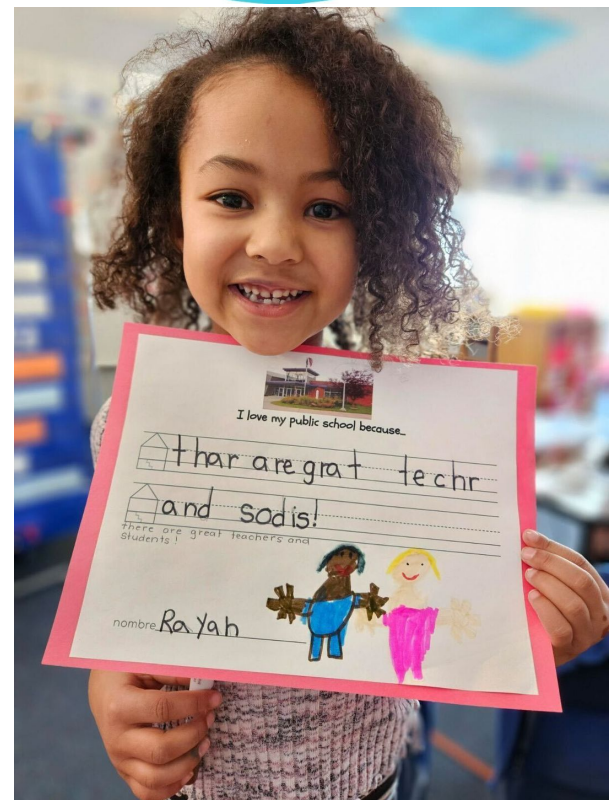 I love my public school because...
thar are grat techr
and sodis!
there are great teachers and
students!
nombre Rayah